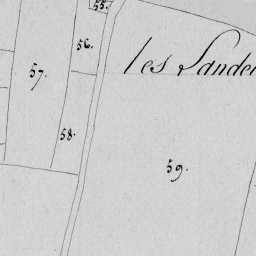 55.
56.
les Lande
57.
58.
59.